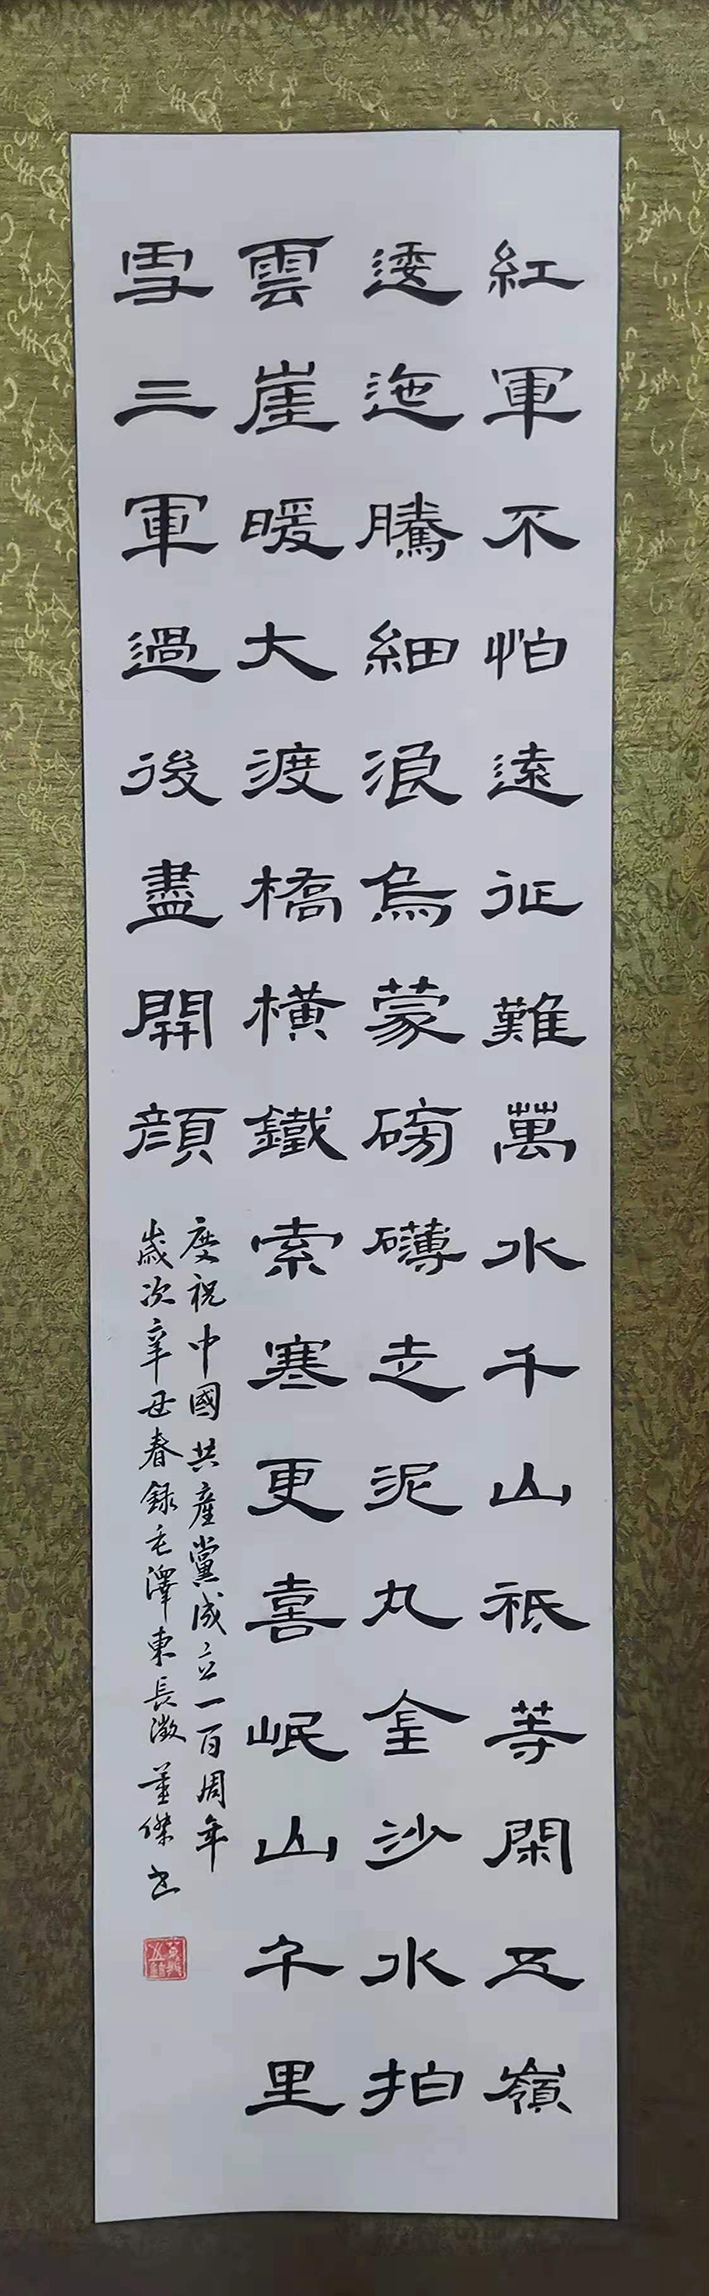 紅軍不怕遠征難萬水千山祗等閑五嶺
逶迤騰細浪烏蒙磅礴走泥丸金沙水拍
雲崖暖大渡橋橫鐵索寒更喜岷山千里
雪三軍過後盡開顔
庆祝中國共產黨成立一百周年
歲次辛丑春録毛澤東長徵董傑书